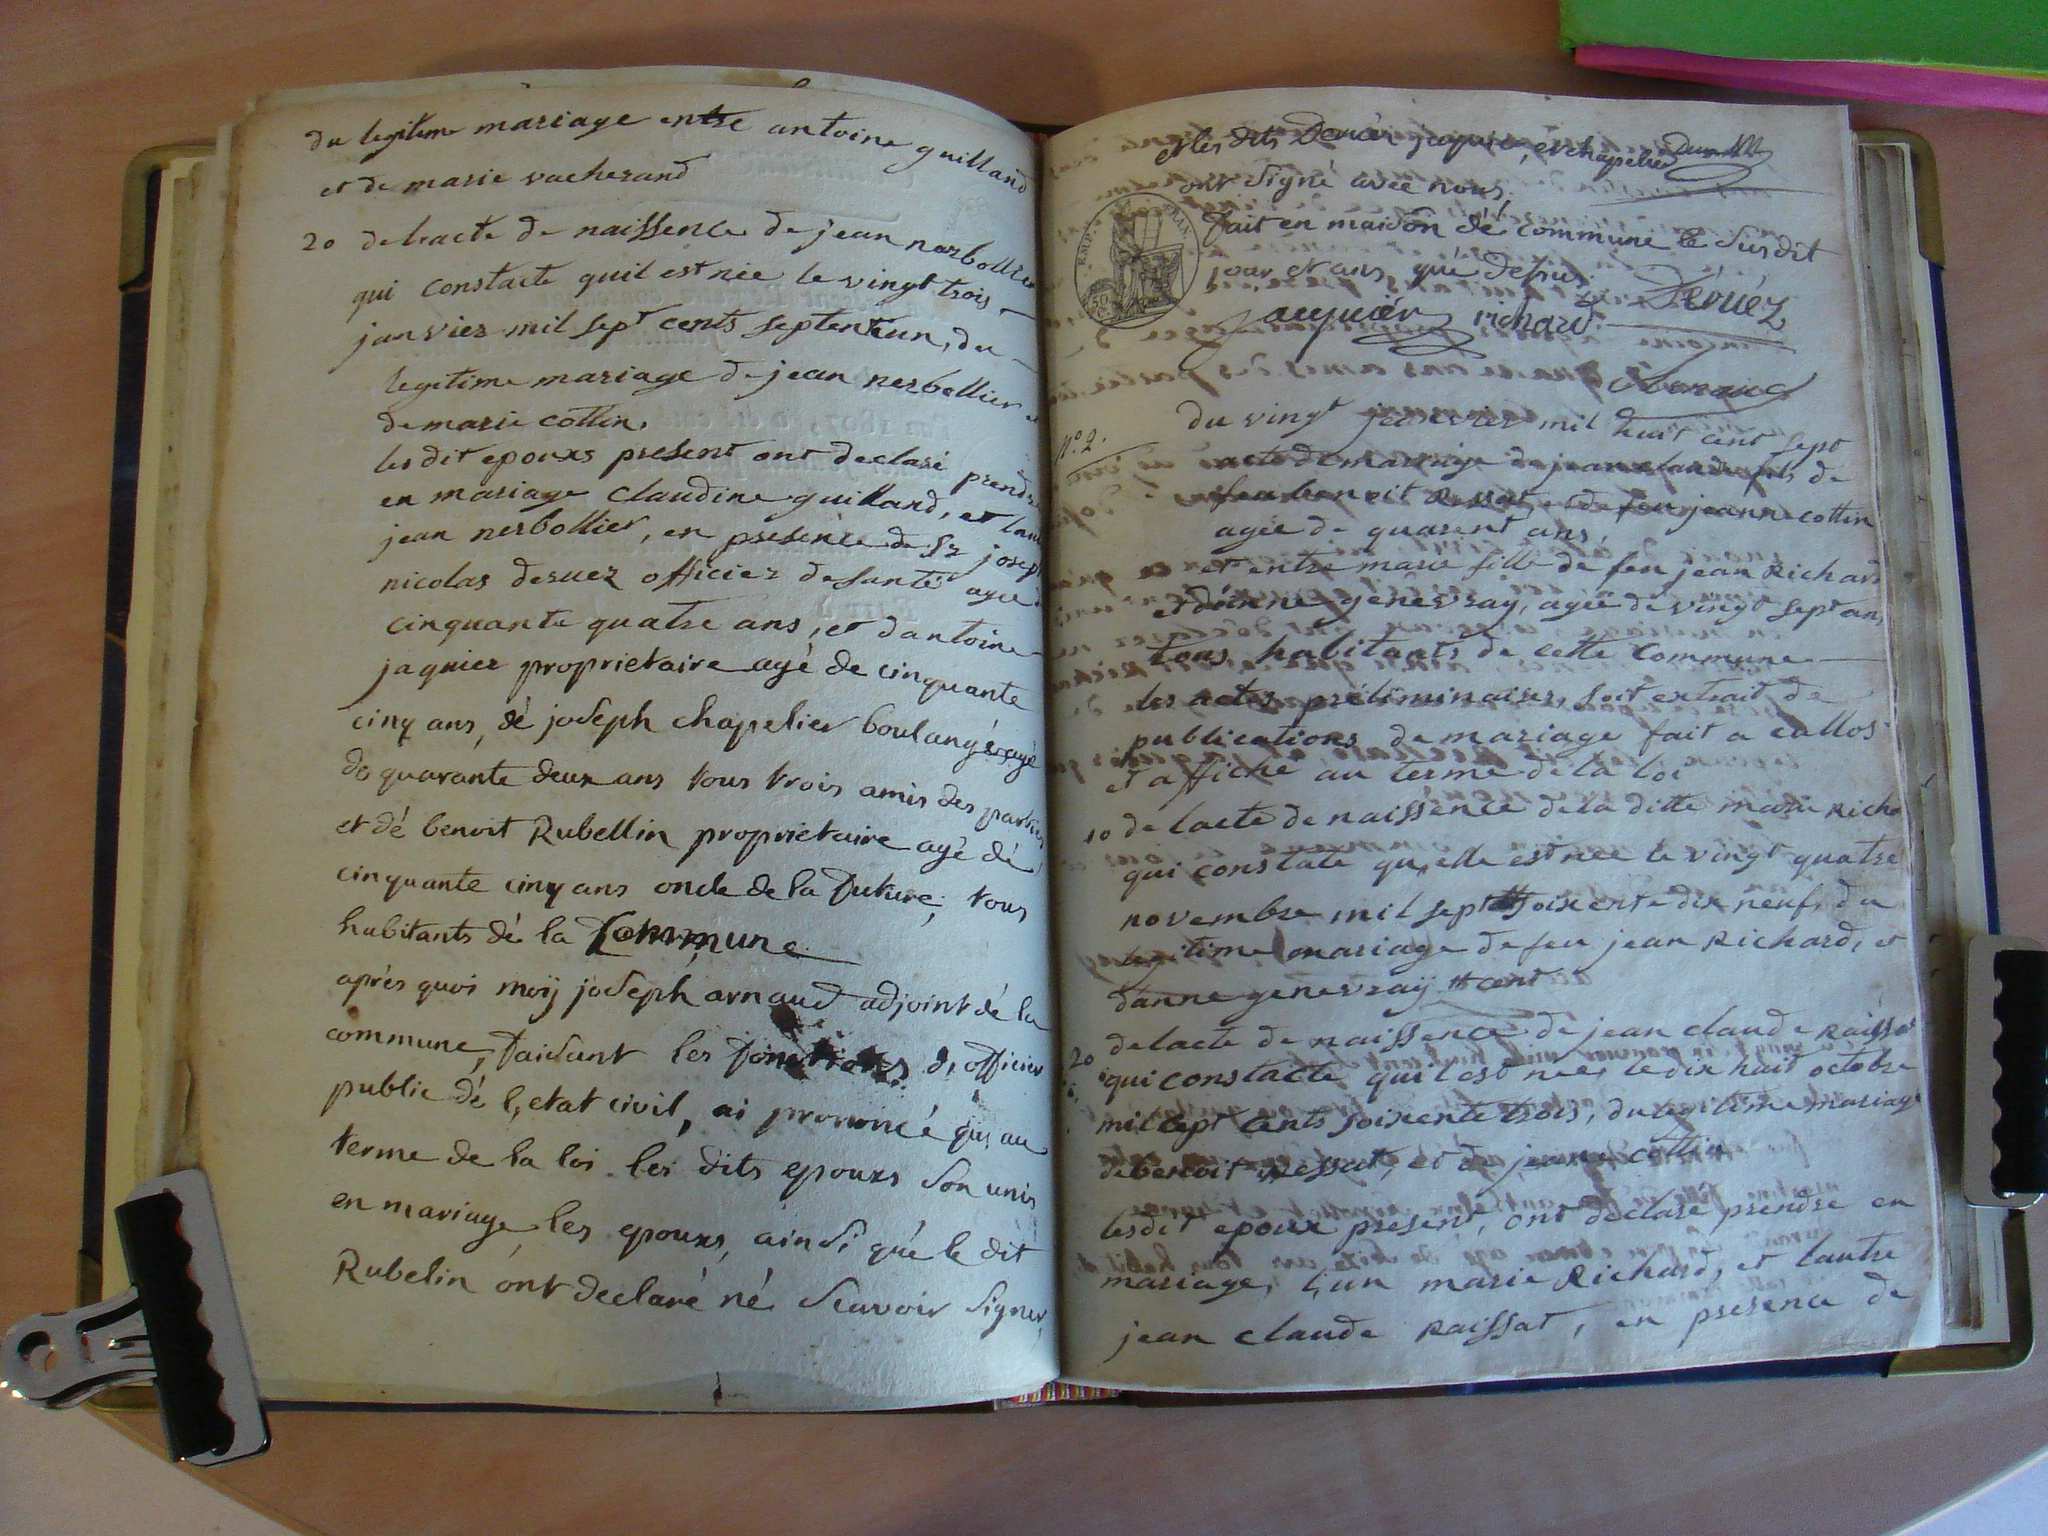 du legitime mariage entre antoine guilland
et de marie vacherand
20 de lacte de naissence de jean nerbollier
qui constacte quil est née le vingt trois
janvier mil sept cents septenteun, du
legitime mariage de jean nerbollier et
de marie cottin,
les dit epouxs present ont declaré prendre
en mariage claudine guilland, et lautre
jean nerbollier, en présence de Sr joseph
nicolas deruez officier de santé agée de
cinquante quatre ans, et dantoine
jaquier proprietaire agé de cinquante
cinq ans, dé joseph chapelier boulangér, agé
de quarante deux ans tous trois amis des parties
et dé benoit Rubellin proprietaire agé dé
cinquante cinq ans oncle de la future, tous
habitants dé la Commune
après quoi moÿ joseph arnaud adjoint dé la
commune, faisant les fonctions d, officier
public dé l, etat civil, ai prononcé qu, au
terme de la loi les dits epouxs son unis
en mariage, les epouxs, ainsi qué le dit
Rubelin ont declaré né scavoir signer,
et les dits Deruéz jaquier, et chapelier
ont signé avec nous,
fait en maison dé commune le susdit
jour et ans qué dessus
EMP. FRAN.
50
jacquiér richard Deruéz
arnaud
No. 2.
du vingt janvier mil huit cent sept
acte de mariage de jean claude fils de
feu benoit Ressat, et de feu jeanne cottin
agée de quarent ans,
et entre marie fille de feu jean Richard
et danne genevray, agée de vingt sept ans
tous habitants de cette commune
les actes préliminaires, soit extrait de
publications de mariage fait a
et affiche au terme de la loi
10 de lacte de naissénce de la ditte marie Richa
qui constate qu,elle est née le vingt quatre
novembre mil sept soixente dix neuf, du
legitime mariage de feu jean Richard, et
danne genevraÿ # cent
20 de lacte de naissence de jean claude Raissat
qui constacte quil est née, le dix huit octobre
mil sept cents soixente trois, du legitime mariage
de benoit Ressat, et de jeanne cottin
lesdit epoux present, ont declaré prendre en
mariage, l,un marie Richard, et lautre
jean claude Raissat, en presence de